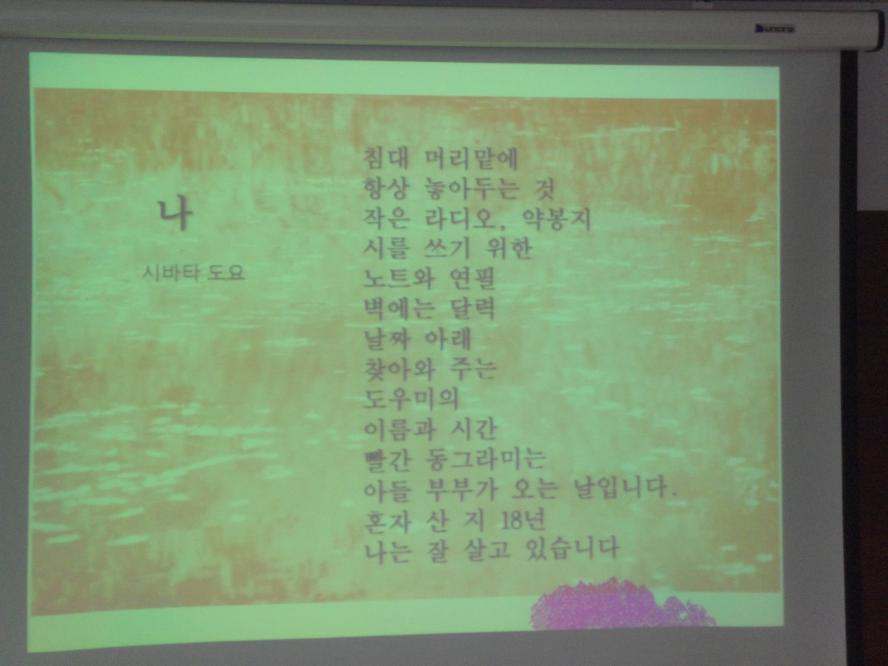 나
시바타 도요
침대 머리맡에
항상 놓아두는 것
작은 라디오, 약봉지
시를 쓰기 위한
노트와 연필
벽에는 달력
날짜 아래
찾아와 주는
도우미의
이름과 시간
빨간 동그라미는
아들 부부가 오는 날입니다.
혼자 산 지 18년
나는 잘 살고 있습니다